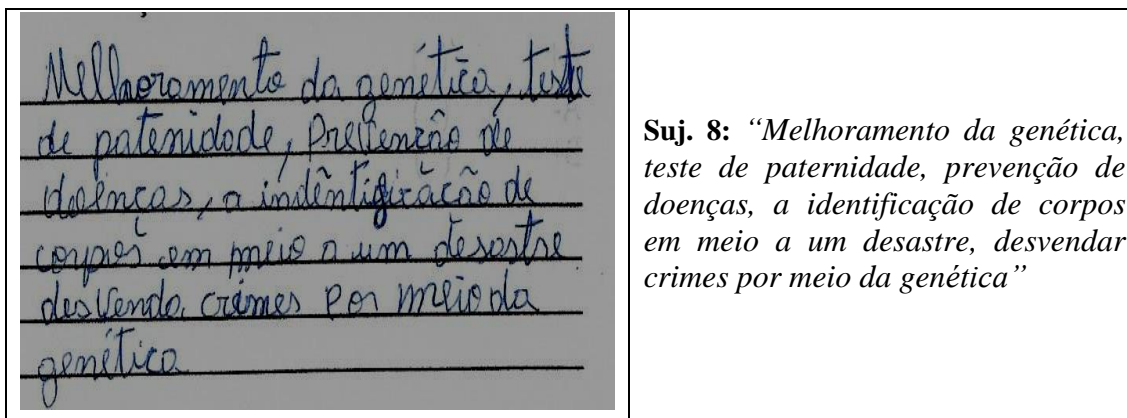 Melhoramento da genética, teste
de patenidade, Prevenção de
doenças, a indêntificação de
corpos em meio a um desastre
desvenda crimes por meio da
genética
Suj. 8: “Melhoramento da genética,
teste de paternidade, prevenção de
doenças, a identificação de corpos
em meio a um desastre, desvendar
crimes por meio da genética”